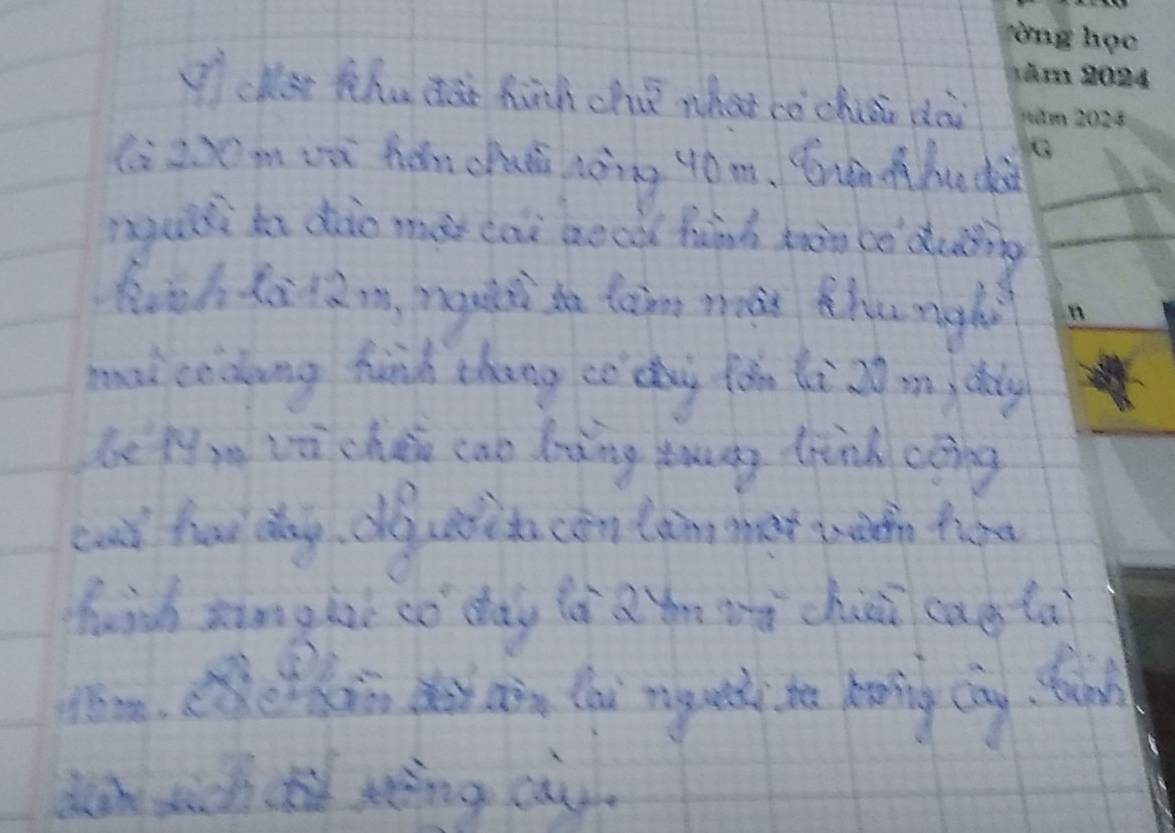 khu đất hình chữ nhật có chiều dài
là 200m và hơn chiều rộng 40m. Trên khu đất
người ta đào một cái ao cá hình tròn có đường
kính là 12m, người ta làm một khu nghỉ
mát có dạng hình thang có đáy lớn là 20m, đáy
bé 14m và chiều cao bằng trung bình cộng
của hai đáy. Người ta còn làm một vườn hoa
hình tam giác có đáy là 24m và chiều cao là
đất còn lại người ta trồng cây. Tính
diện tích đất trồng cây.
ờng học
năm 2024
năm 2024
G
n